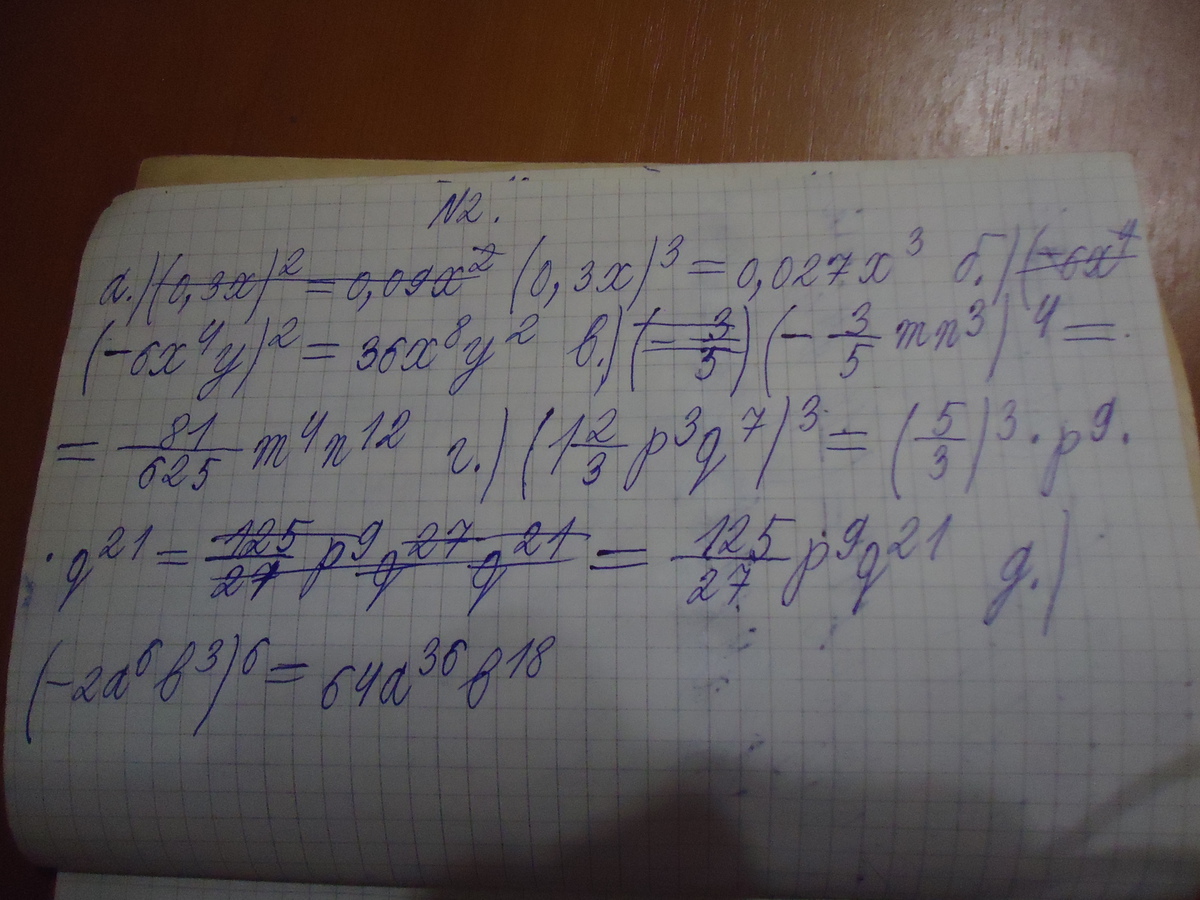 №2.
а.) (0,3x)² = 0,09x² (0,3x)³ = 0,027x³ б.) (-6x⁴
(-6x⁴y)² = 36x⁸y² в.) (-3/5) (-3/5 mn³)⁴ =
= 81/625 m⁴n¹² г.) (1 2/3 p³q⁷)³ = (5/3)³ · p⁹ ·
· q²¹ = 125/27 p⁹q²⁷ q²¹ = 125/27 p⁹q²¹ д.)
(-2a⁶b³)⁶ = 64a³⁶b¹⁸